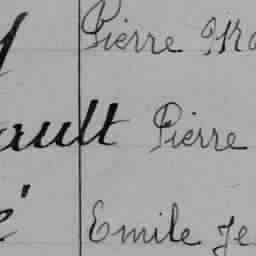 Pierre
ault Pierre
Emile Je